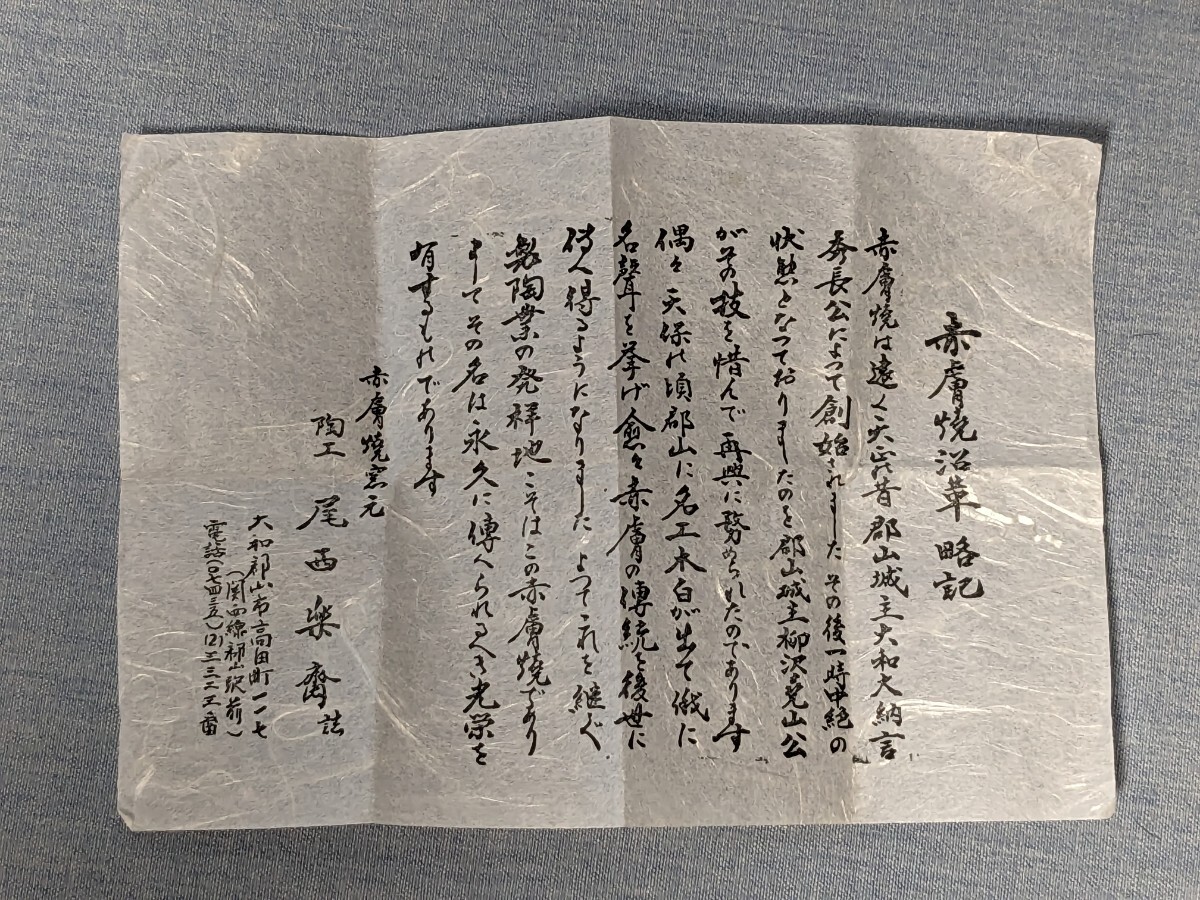 赤膚焼沿革略記
赤膚焼は遠く天正の昔郡山城主大和大納言
秀長公によって創始されました その後一時中絶の
状態となっておりましたのを郡山城主柳沢尭山公
がその技を惜んで再興に務められたのであります
偶々天保の頃郡山に名工木白が出て俄に
名聲を挙げ愈々赤膚の傳統を後世に
傳へ得るようになりました よってこれを継ぐ
製陶業の発祥地こそはこの赤膚焼であり
ましてその名は永久に傳へられるべき光栄を
有するものであります
赤膚焼窯元
陶工 尾西楽斎 誌
大和郡山市高田町一一七
(関西線郡山駅前)
電話(〇七四三五)(2)三三二三番